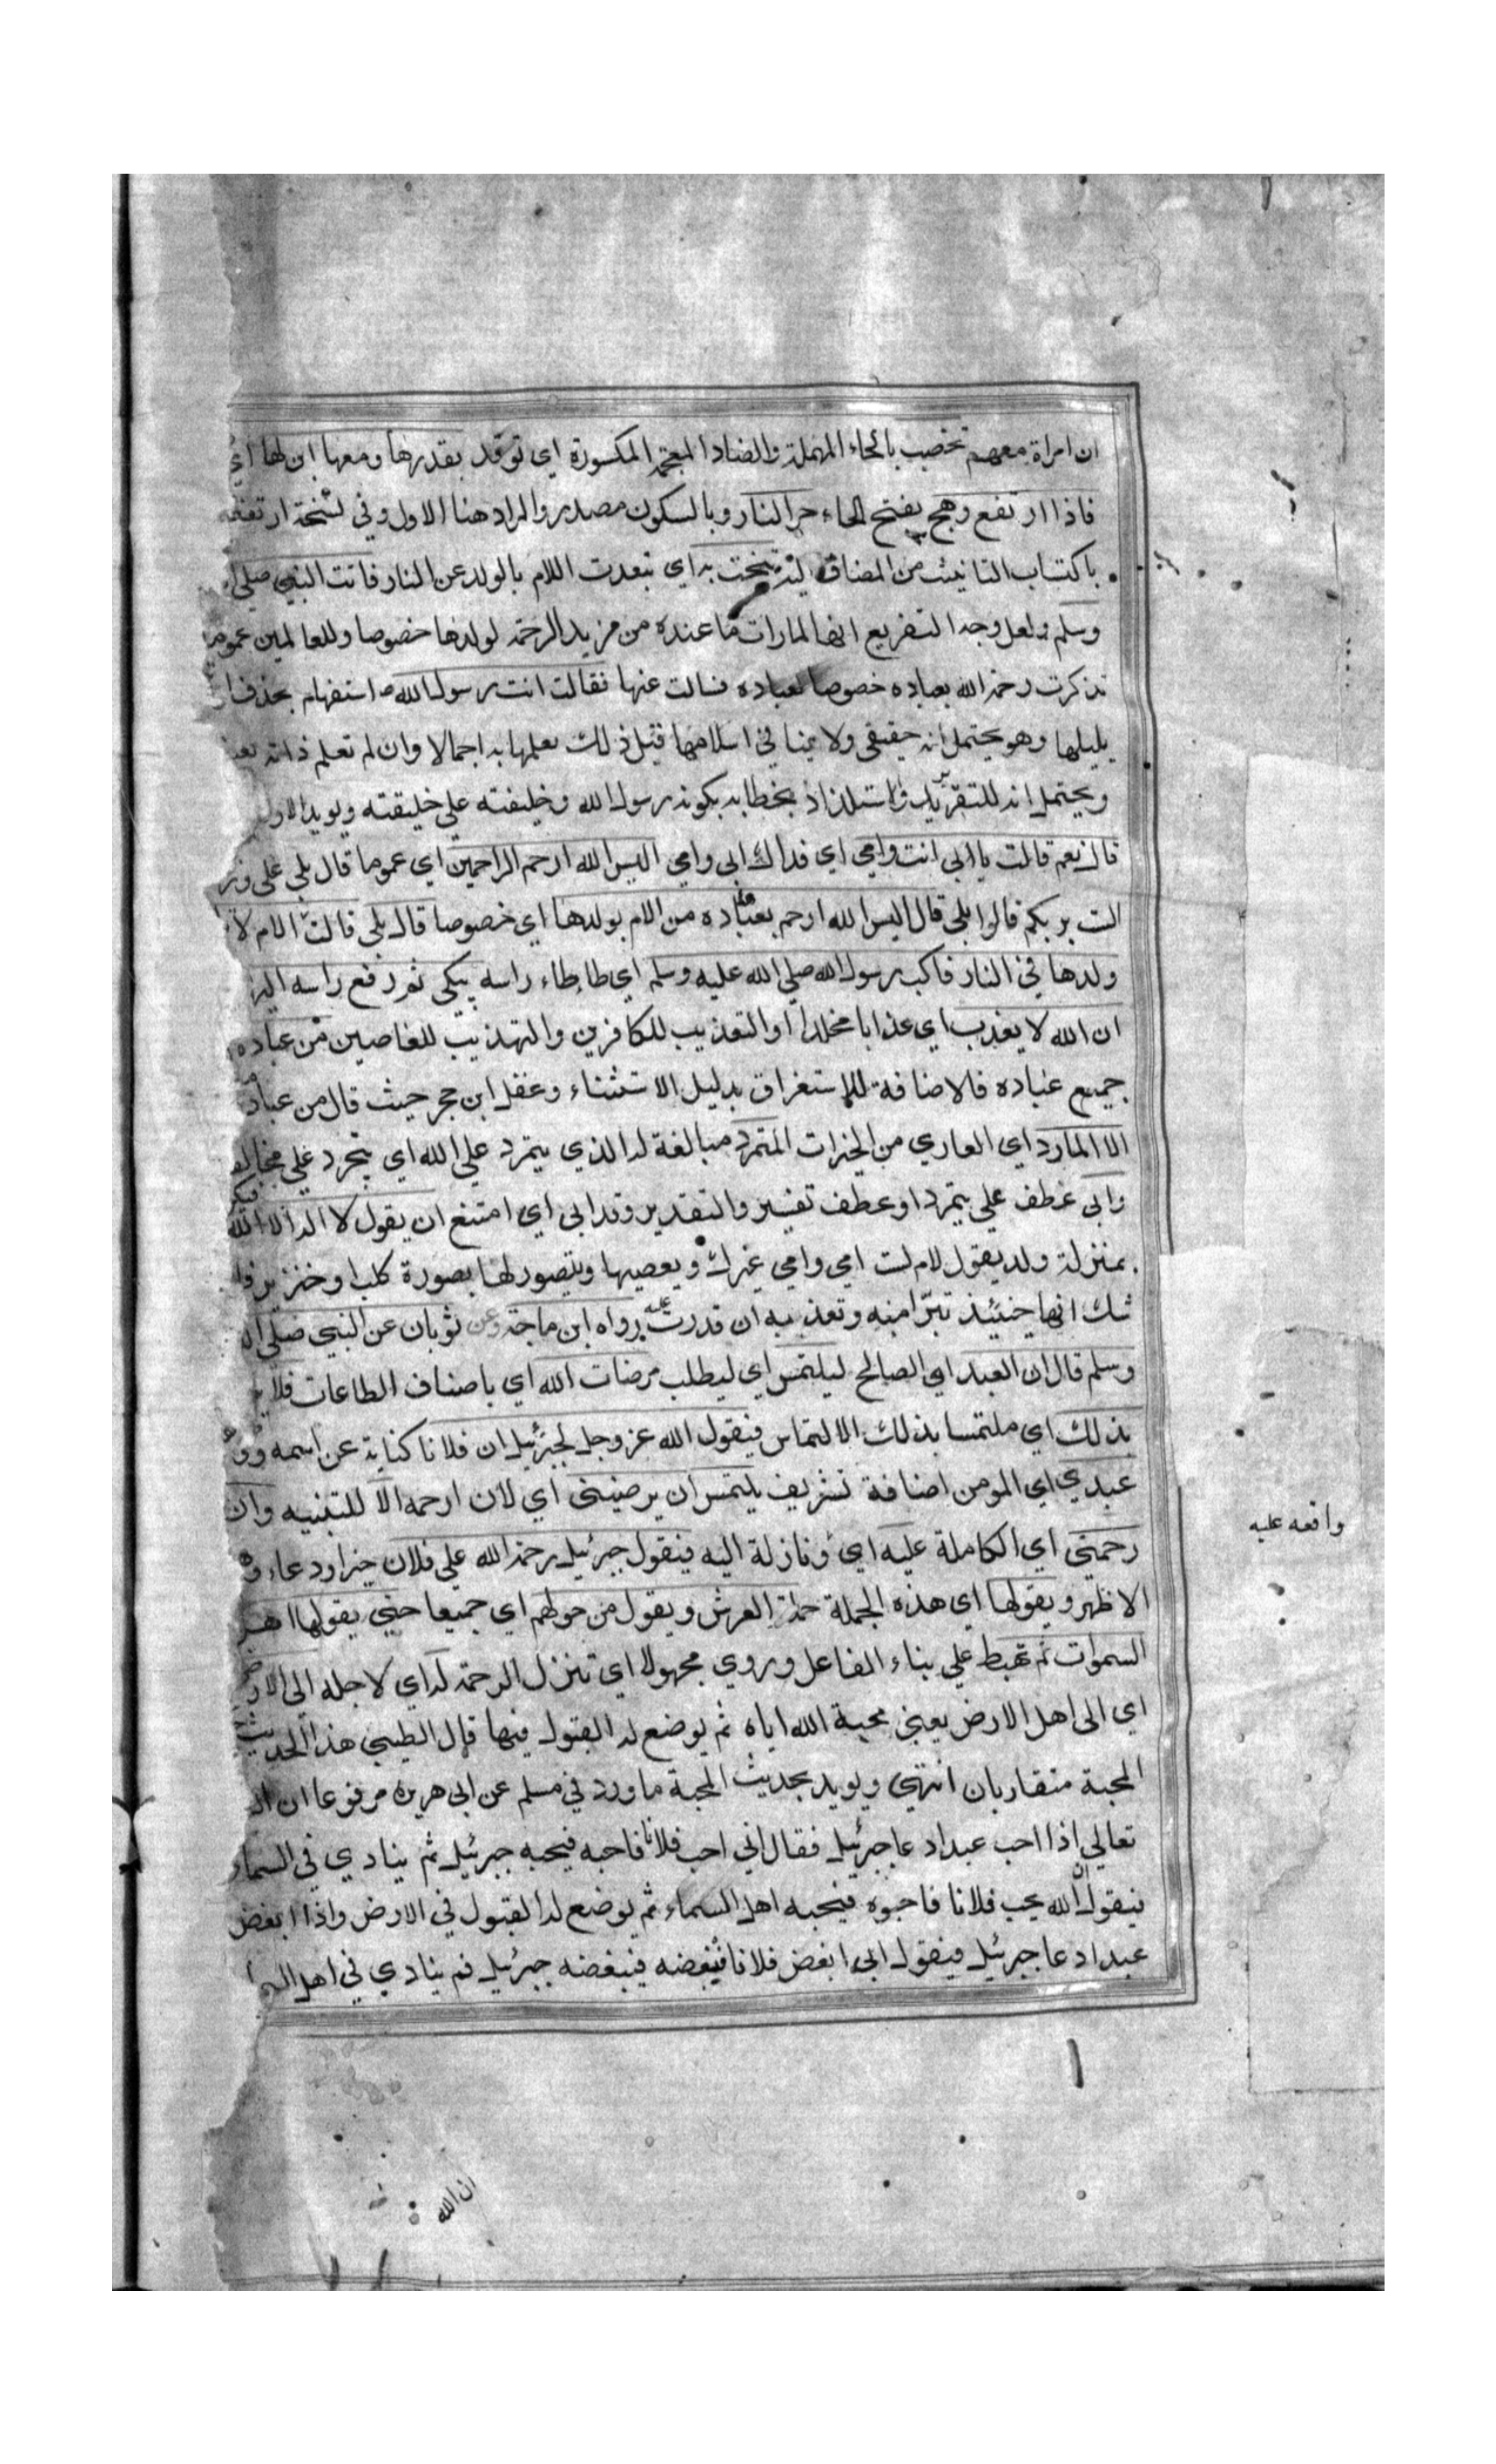 ان امراة معهم تحضب بالحاء المهملة والضاد المعجمة المكسورة اي توقد بقدرها ومعها ابن لها اي
فاذا ارتفع وهج بفتح الهاء حر النار وبالسكون مصدر والمراد هنا الاول وفي نسخة ارتفعت
باكتساب التانيث من المضاف اليه تنحت به اي تبعدت اللام بالولد عن النار فاتت النبي صلي
وسلم ولعل وجه التفريع انها لما رات ما عنده من مزيد الرحمة لولدها خصوصا وللعالمين عموما
تذكرت رحمة الله بعباده خصوصا لعباده فسالت عنها فقالت انت رسول الله استفهام بحذف
يليلها وهو يحتمل انه حقيقي ولا ينافي اسلامها قبل ذلك بعلمها به اجمالا وان لم تعلم ذاته
ويحتمل انه للتقرير والاستلذاذ بخطابه بكونه رسول الله وخليفته علي خليقته ويويد الاول
قال نعم قالت بابي انت وامي اي فداك ابي وامي اليس الله ارحم الراحمين اي عموما قال بلي علي وزن
الست بربكم قالوا بلي قال اليس الله ارحم بعباده من الام بولدها اي خصوصا قال بلي قالت ان الام لا
ولدها في النار فاكب رسول الله صلي الله عليه وسلم اي طاطاء راسه يبكي ثم رفع راسه اليها
ان الله لا يعذب اي عذابا مخلدا او التعذيب للكافرين والتهذيب للعاصين من عباده
جميع عباده فالاضافة للاستغراق بدليل الاستثناء وغفل ابن حجر حيث قال من عباده
الا المارد اي العاري من الخيرات المتمرد مبالغة له الذي يتمرد علي الله اي يتجرد علي مخالفه
وابى عطف علي يتمرد او عطف تفسير والتقدير وقد ابي اي امتنع ان يقول لا اله الا الله
بمنزلة ولد يقول لام لست امي وامي غيرك ويعصيها ويتصور لها بصورة كلب او خنزير فلا
شك انها حينئذ تتبرا منه وتعذبه ان قدرت عليه رواه ابن ماجة وعن ثوبان عن النبي صلي
وسلم قال ان العبد اي الصالح ليلتمس اي ليطلب مرضات الله اي باصناف الطاعات فلا
بذلك اي ملتمسا بذلك الالتماس فيقول الله عز وجل لجبرئيل ان فلانا كناية عن اسمه
عبدي اي المومن اضافة تشريف يلتمس ان يرضيني اي لان ارحمه الا للتنبيه وان
رحمتي اي الكاملة عليه اي ونازلة اليه فيقول جبرئيل رحمة الله علي فلان خبر اودعاء
الاظهر ويقولها اي هذه الجملة حملة العرش ويقول من حولهم اي جميعا حتي يقولها اهل
السموات ثم تهبط علي بناء الفاعل وروي مجهولا اي تنزل الرحمة له اي لاجله الي الارض
اي الى اهل الارض يعني محبة الله اياه ثم يوضع له القبول فيها قال الطيبي هذا الحديث
المحبة متقاربان انتهي ويويد بحديث المحبة ما ورد في مسلم عن ابي هريرة مرفوعا ان
تعالي اذا احب عبدا دعا جبرئيل فقال اني احب فلانا فاحبه فيحبه جبرئيل ثم ينادي في السماء
فيقول ان الله يحب فلانا فاحبوه فيحبه اهل السماء ثم يوضع له القبول في الارض واذا ابغض
عبدا دعا جبرئيل فيقول اني ابغض فلانا فابغضه فيبغضه جبرئيل ثم ينادي في اهل
واقعه عليه
ان الله